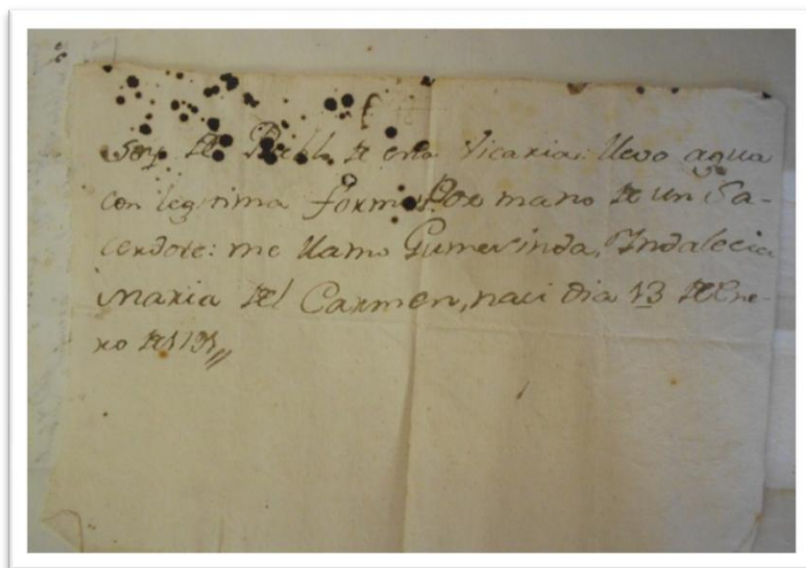 Soy del Pueblo de esta Vicaria: llevo agua
con legitima forma Por mano de un Sa-
cerdote: me llamo Gumersinda, Indalecia
Maria del Carmen, naci dia 13 de Ene-
ro de